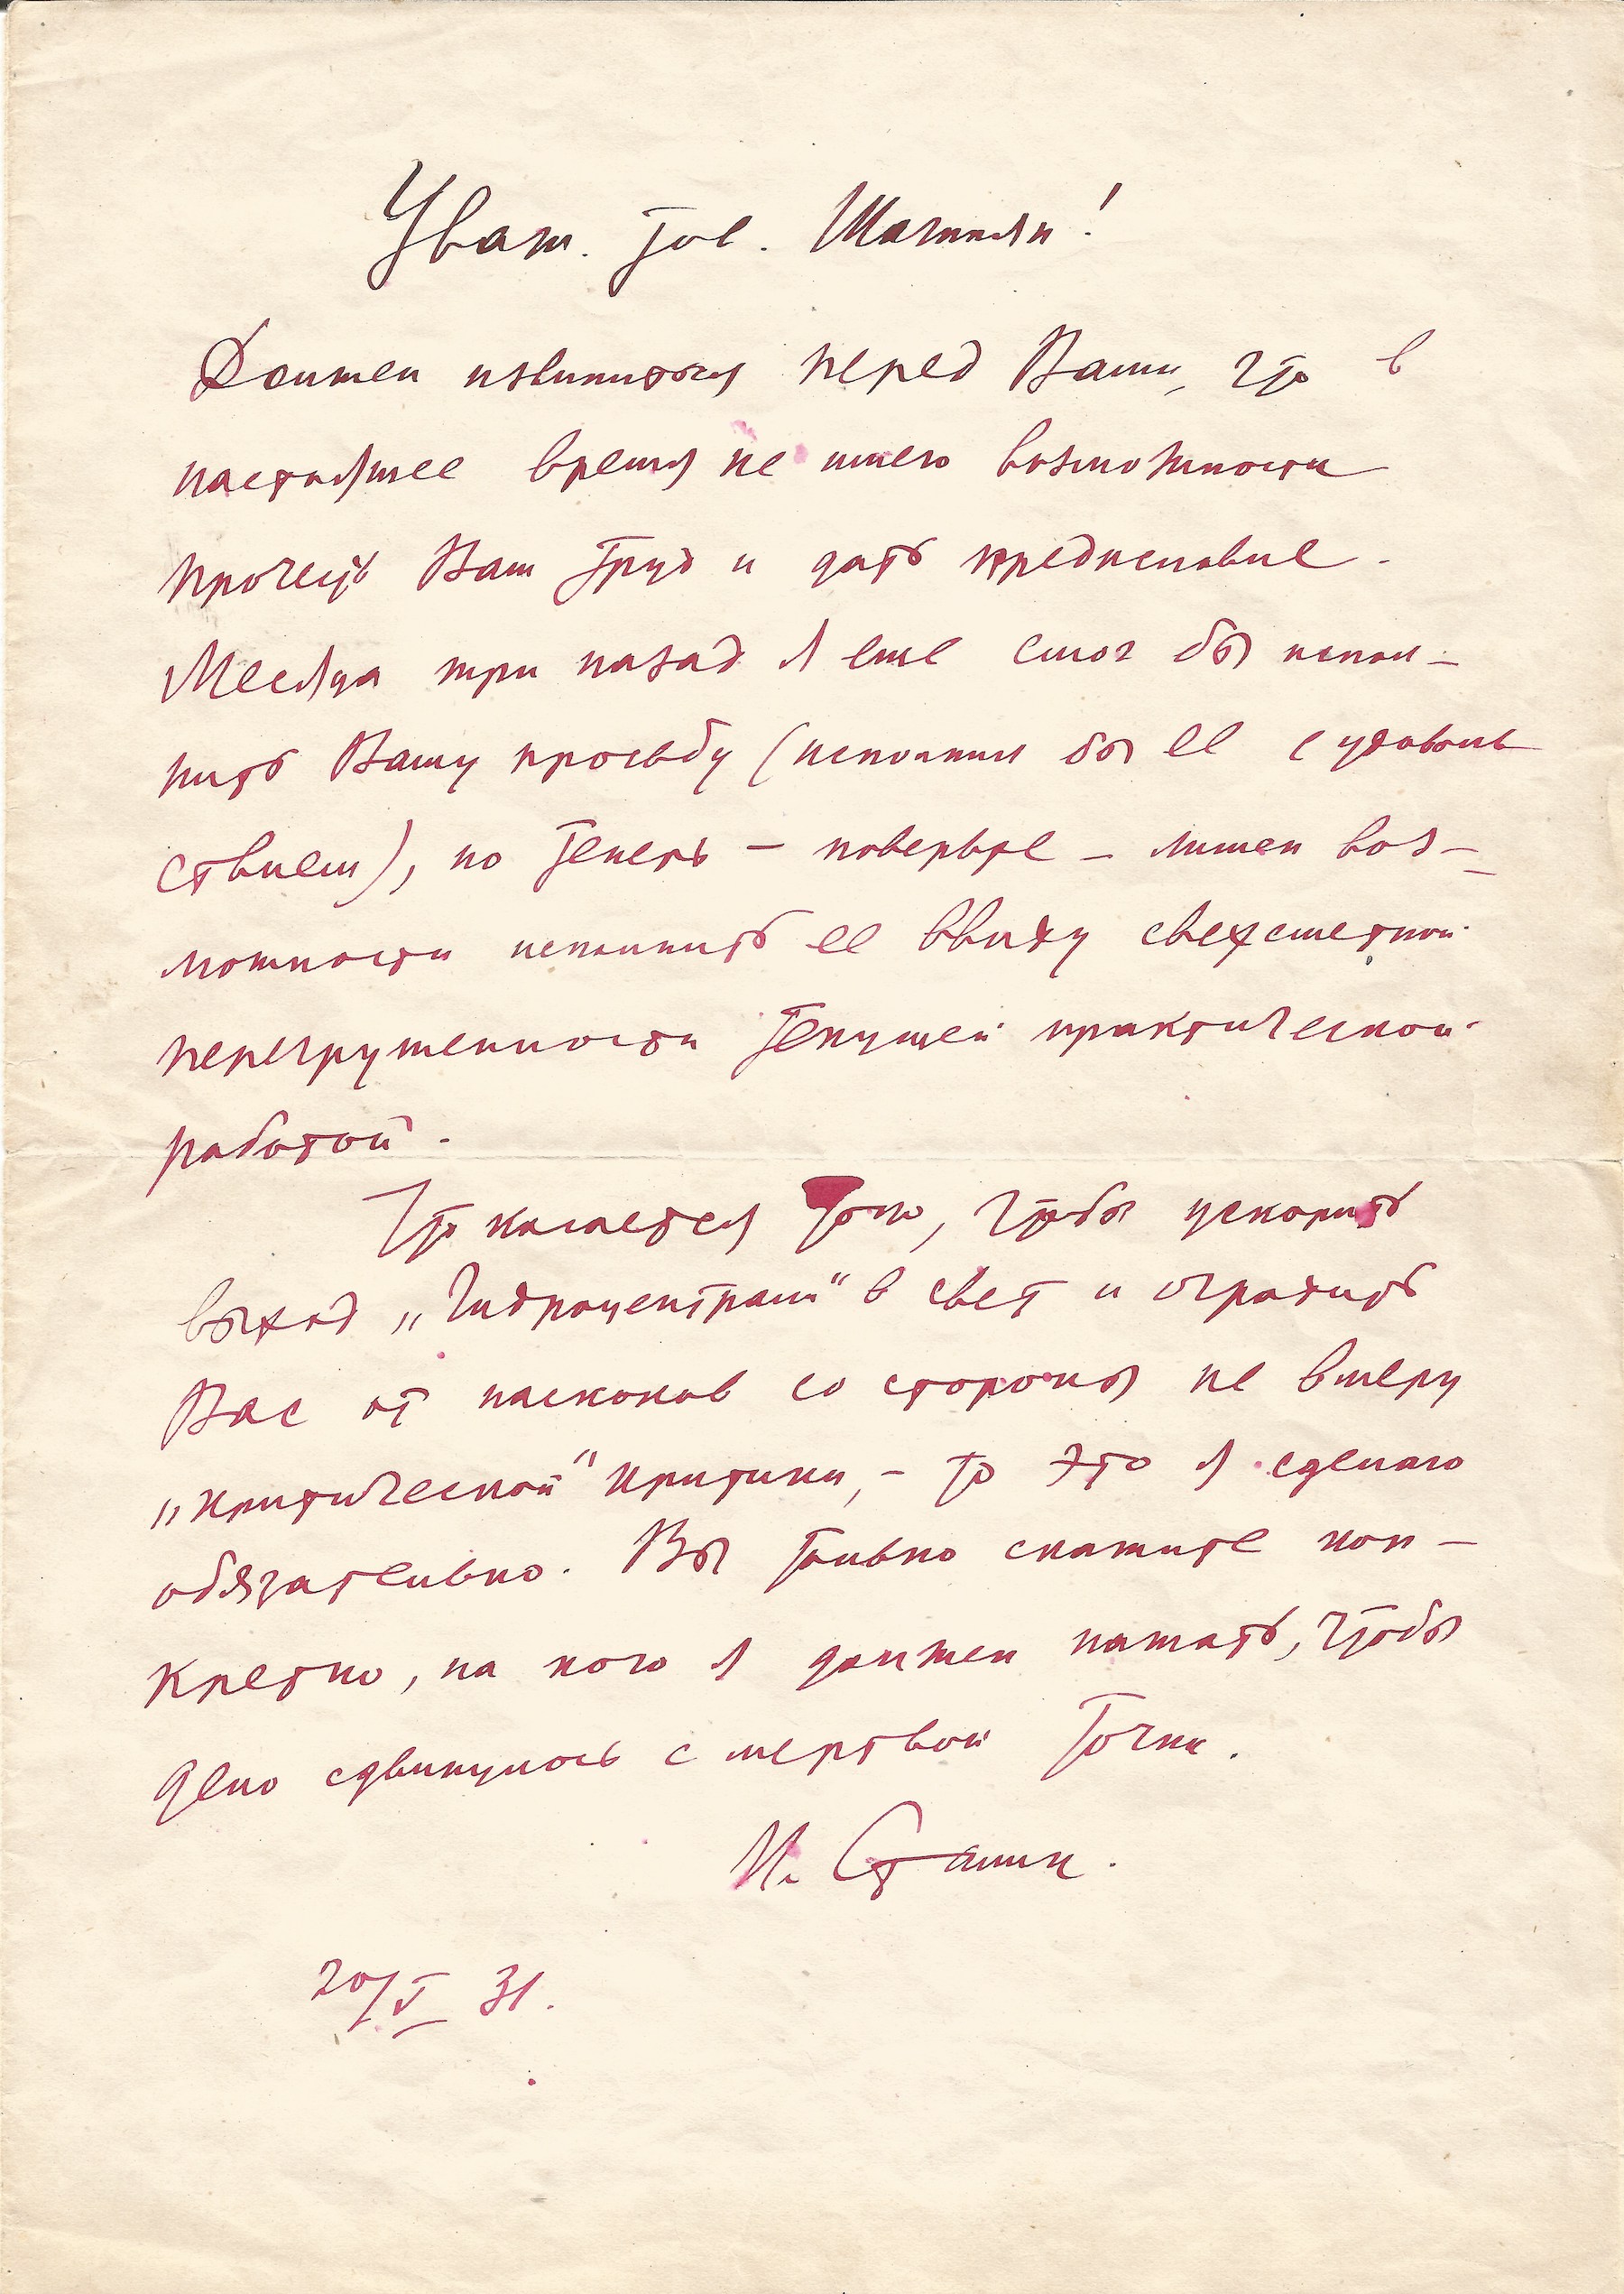 Уваж. тов. Шагинян!
Должен извиниться перед Вами, что в
настоящее время не имею возможности
прочесть Ваш труд и дать предисловие.
Месяца три назад я еще смог бы испол-
нить Вашу просьбу (исполнил бы ее с удоволь
ствием), но теперь – поверьте – лишен воз-
можности исполнить ее ввиду сверхсметной
перегруженности текущей практической
работой.
Что касается того, чтобы ускорить
выход „Гидроцентрали“ в свет и оградить
Вас от наскоков со стороны не в меру
„критической“ критики, – то это я сделаю
обязательно. Вы только скажите кон-
кретно, на кого я должен нажать, чтобы
дело сдвинулось с мертвой точки.
И. Сталин.
20/V 31.